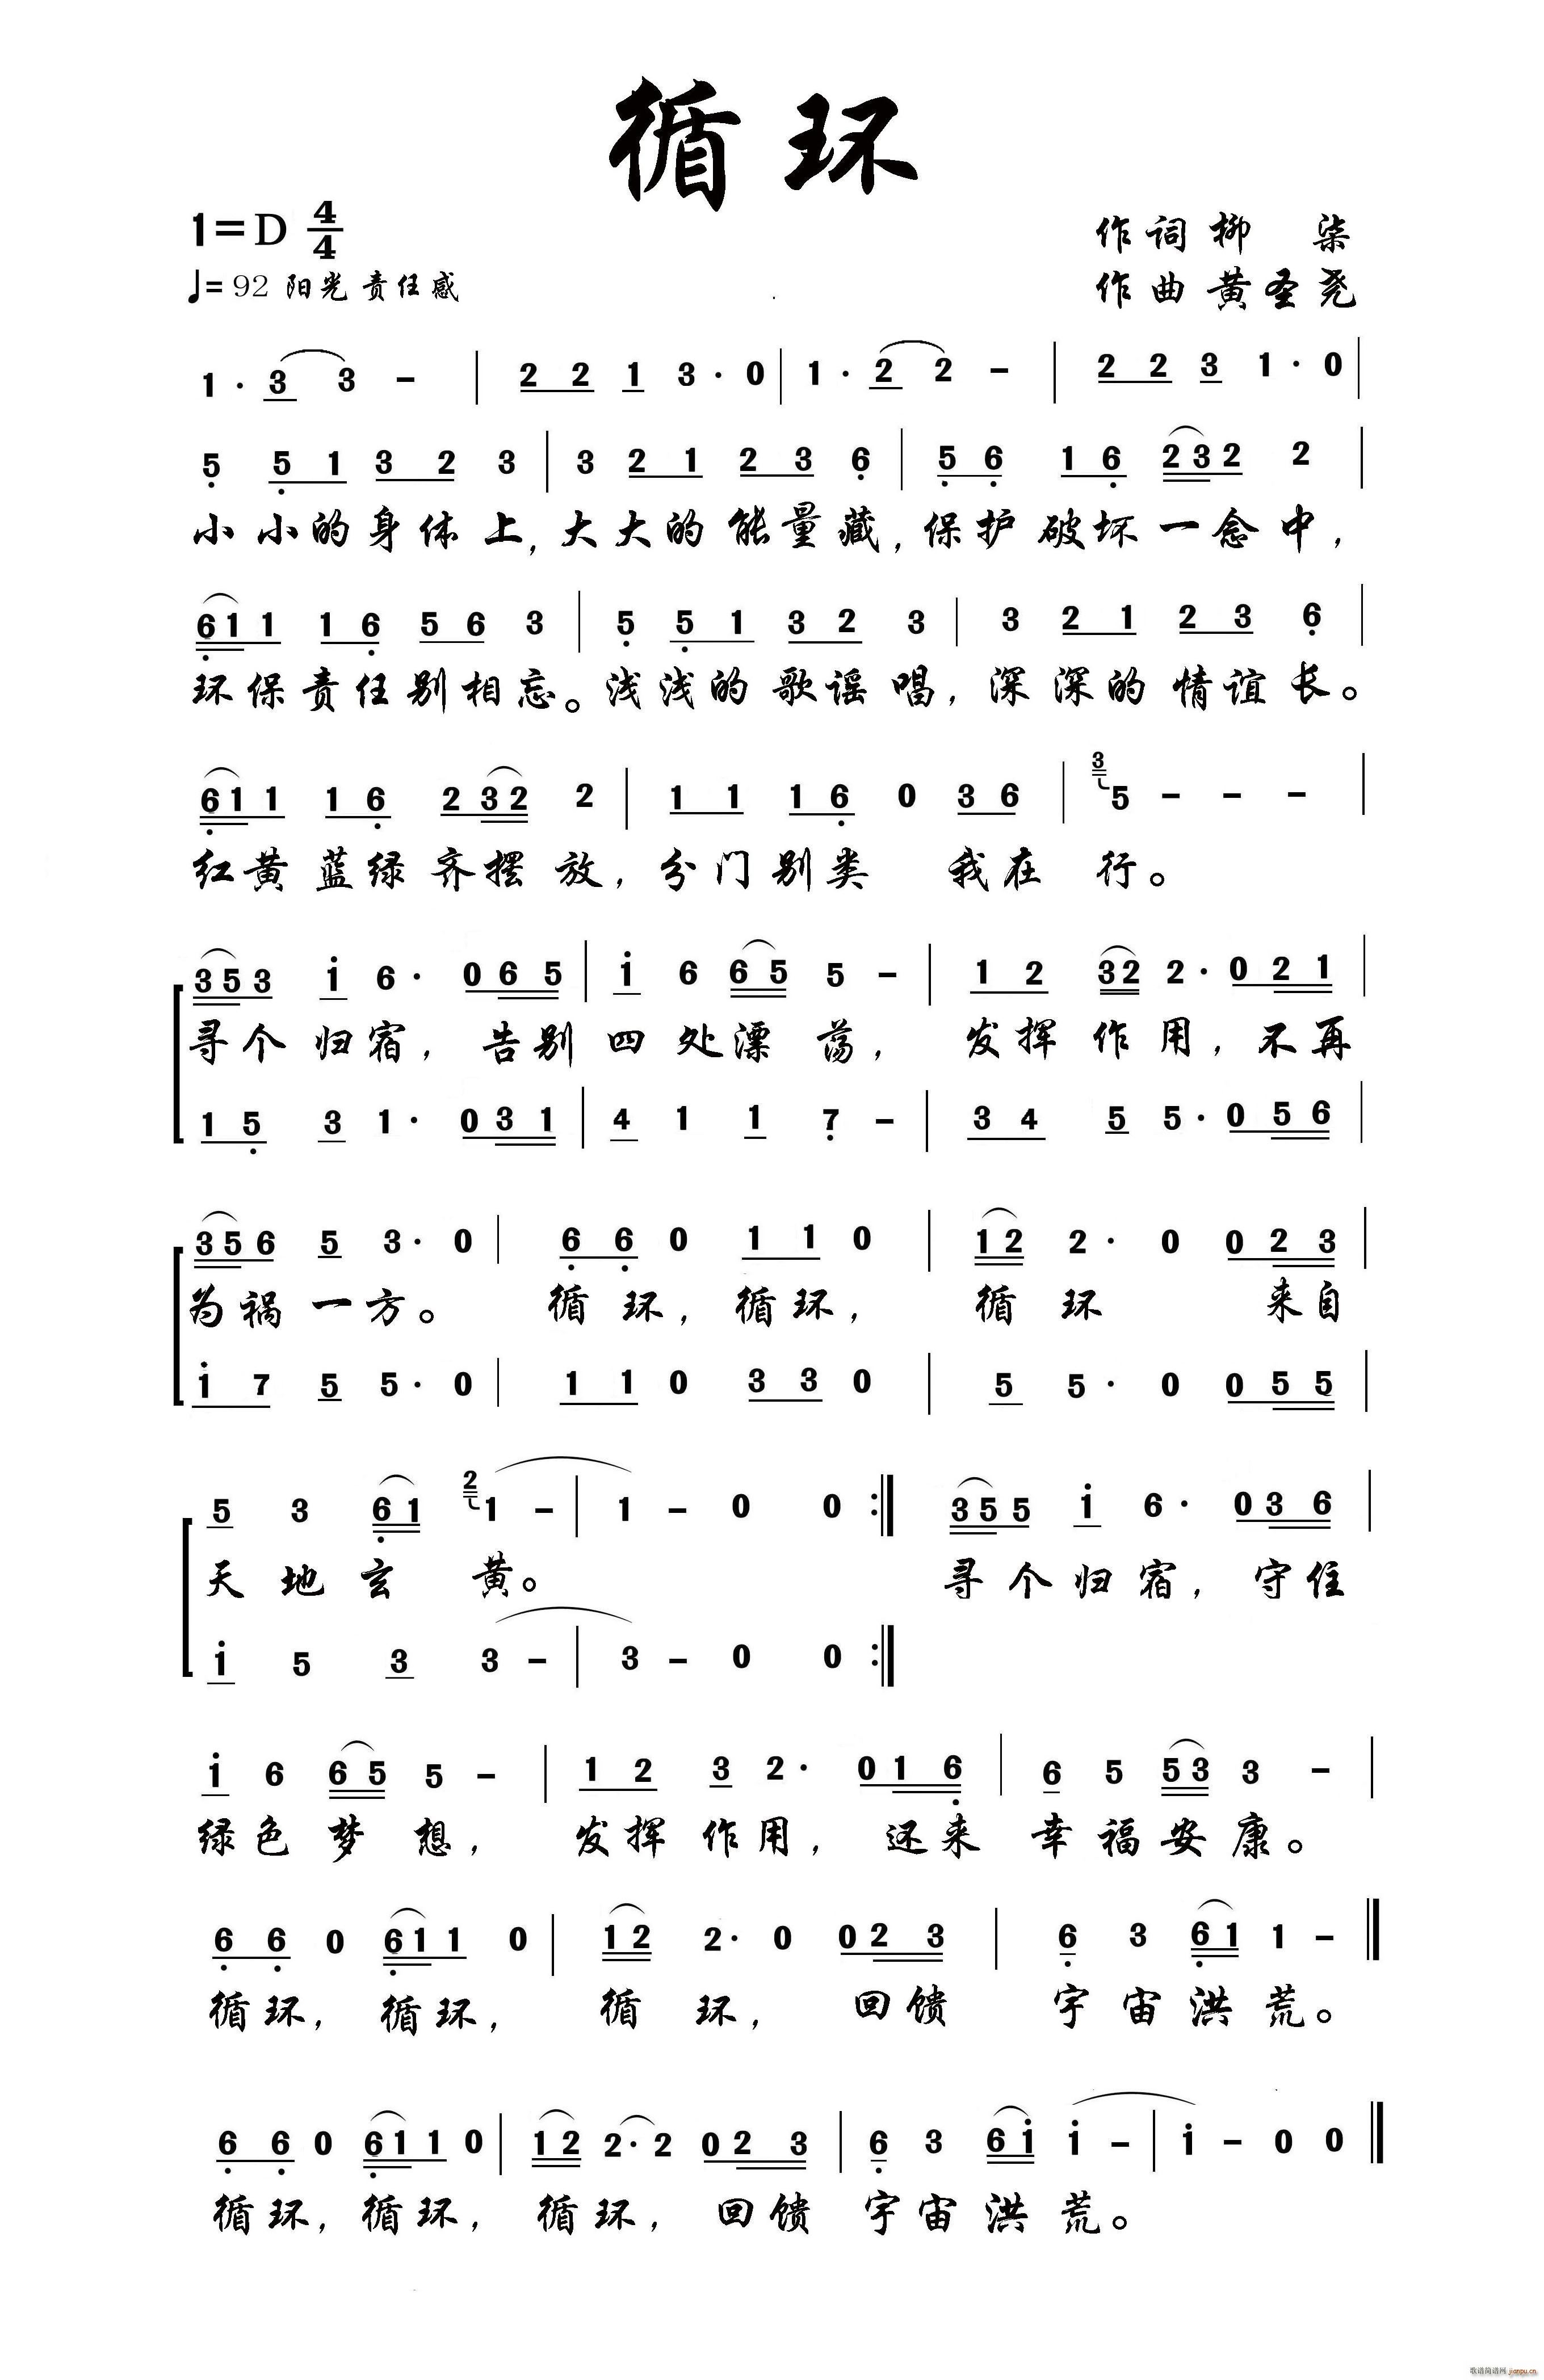 循环
1=D 4/4
作词 柳 柒
♩=92 阳光 责任感
作曲 黄圣尧
1 · 3 3 – | 2 2 1 3 · 0 | 1 · 2 2 – | 2 2 3 1 · 0 |
5 5 1 3 2 3 | 3 2 1 2 3 6 | 5 6 1 6 2 3 2 2 |
小小的身体上,大大的能量藏,保护破坏一念中,
6 1 1 1 6 5 6 3 | 5 5 1 3 2 3 | 3 2 1 2 3 6 |
环保责任别相忘。浅浅的歌谣唱,深深的情谊长。
6 1 1 1 6 2 3 2 2 | 1 1 1 6 0 3 6 | 3 5 – – – |
红黄蓝绿齐摆放,分门别类 我在 行。
3 5 3 i 6 · 0 6 5 | i 6 6 5 5 – | 1 2 3 2 2 · 0 2 1 |
寻个归宿,告别四处漂荡,发挥作用,不再
1 5 3 1 · 0 3 1 | 4 1 1 7 – | 3 4 5 5 · 0 5 6 |
3 5 6 5 3 · 0 | 6 6 0 1 1 0 | 1 2 2 · 0 0 2 3 |
为祸一方。 循环,循环, 循环 来自
i 7 5 5 · 0 | 1 1 0 3 3 0 | 5 5 · 0 0 5 5 |
5 3 6 1 2 1 – | 1 – 0 0 :|| 3 5 5 i 6 · 0 3 6 |
天地玄黄。 寻个归宿,守住
i 5 3 3 – | 3 – 0 0 :||
i 6 6 5 5 – | 1 2 3 2 · 0 1 6 | 6 5 5 3 3 – |
绿色梦想, 发挥作用, 还来 幸福安康。
6 6 0 6 1 1 0 | 1 2 2 · 0 0 2 3 | 6 3 6 1 1 – ||
循环,循环, 循环, 回馈 宇宙洪荒。
6 6 0 6 1 1 0 | 1 2 2 · 2 0 2 3 | 6 3 6 i i – | i – 0 0 ||
循环,循环,循环,回馈 宇宙洪荒。
歌谱简谱网 jianpu.cn